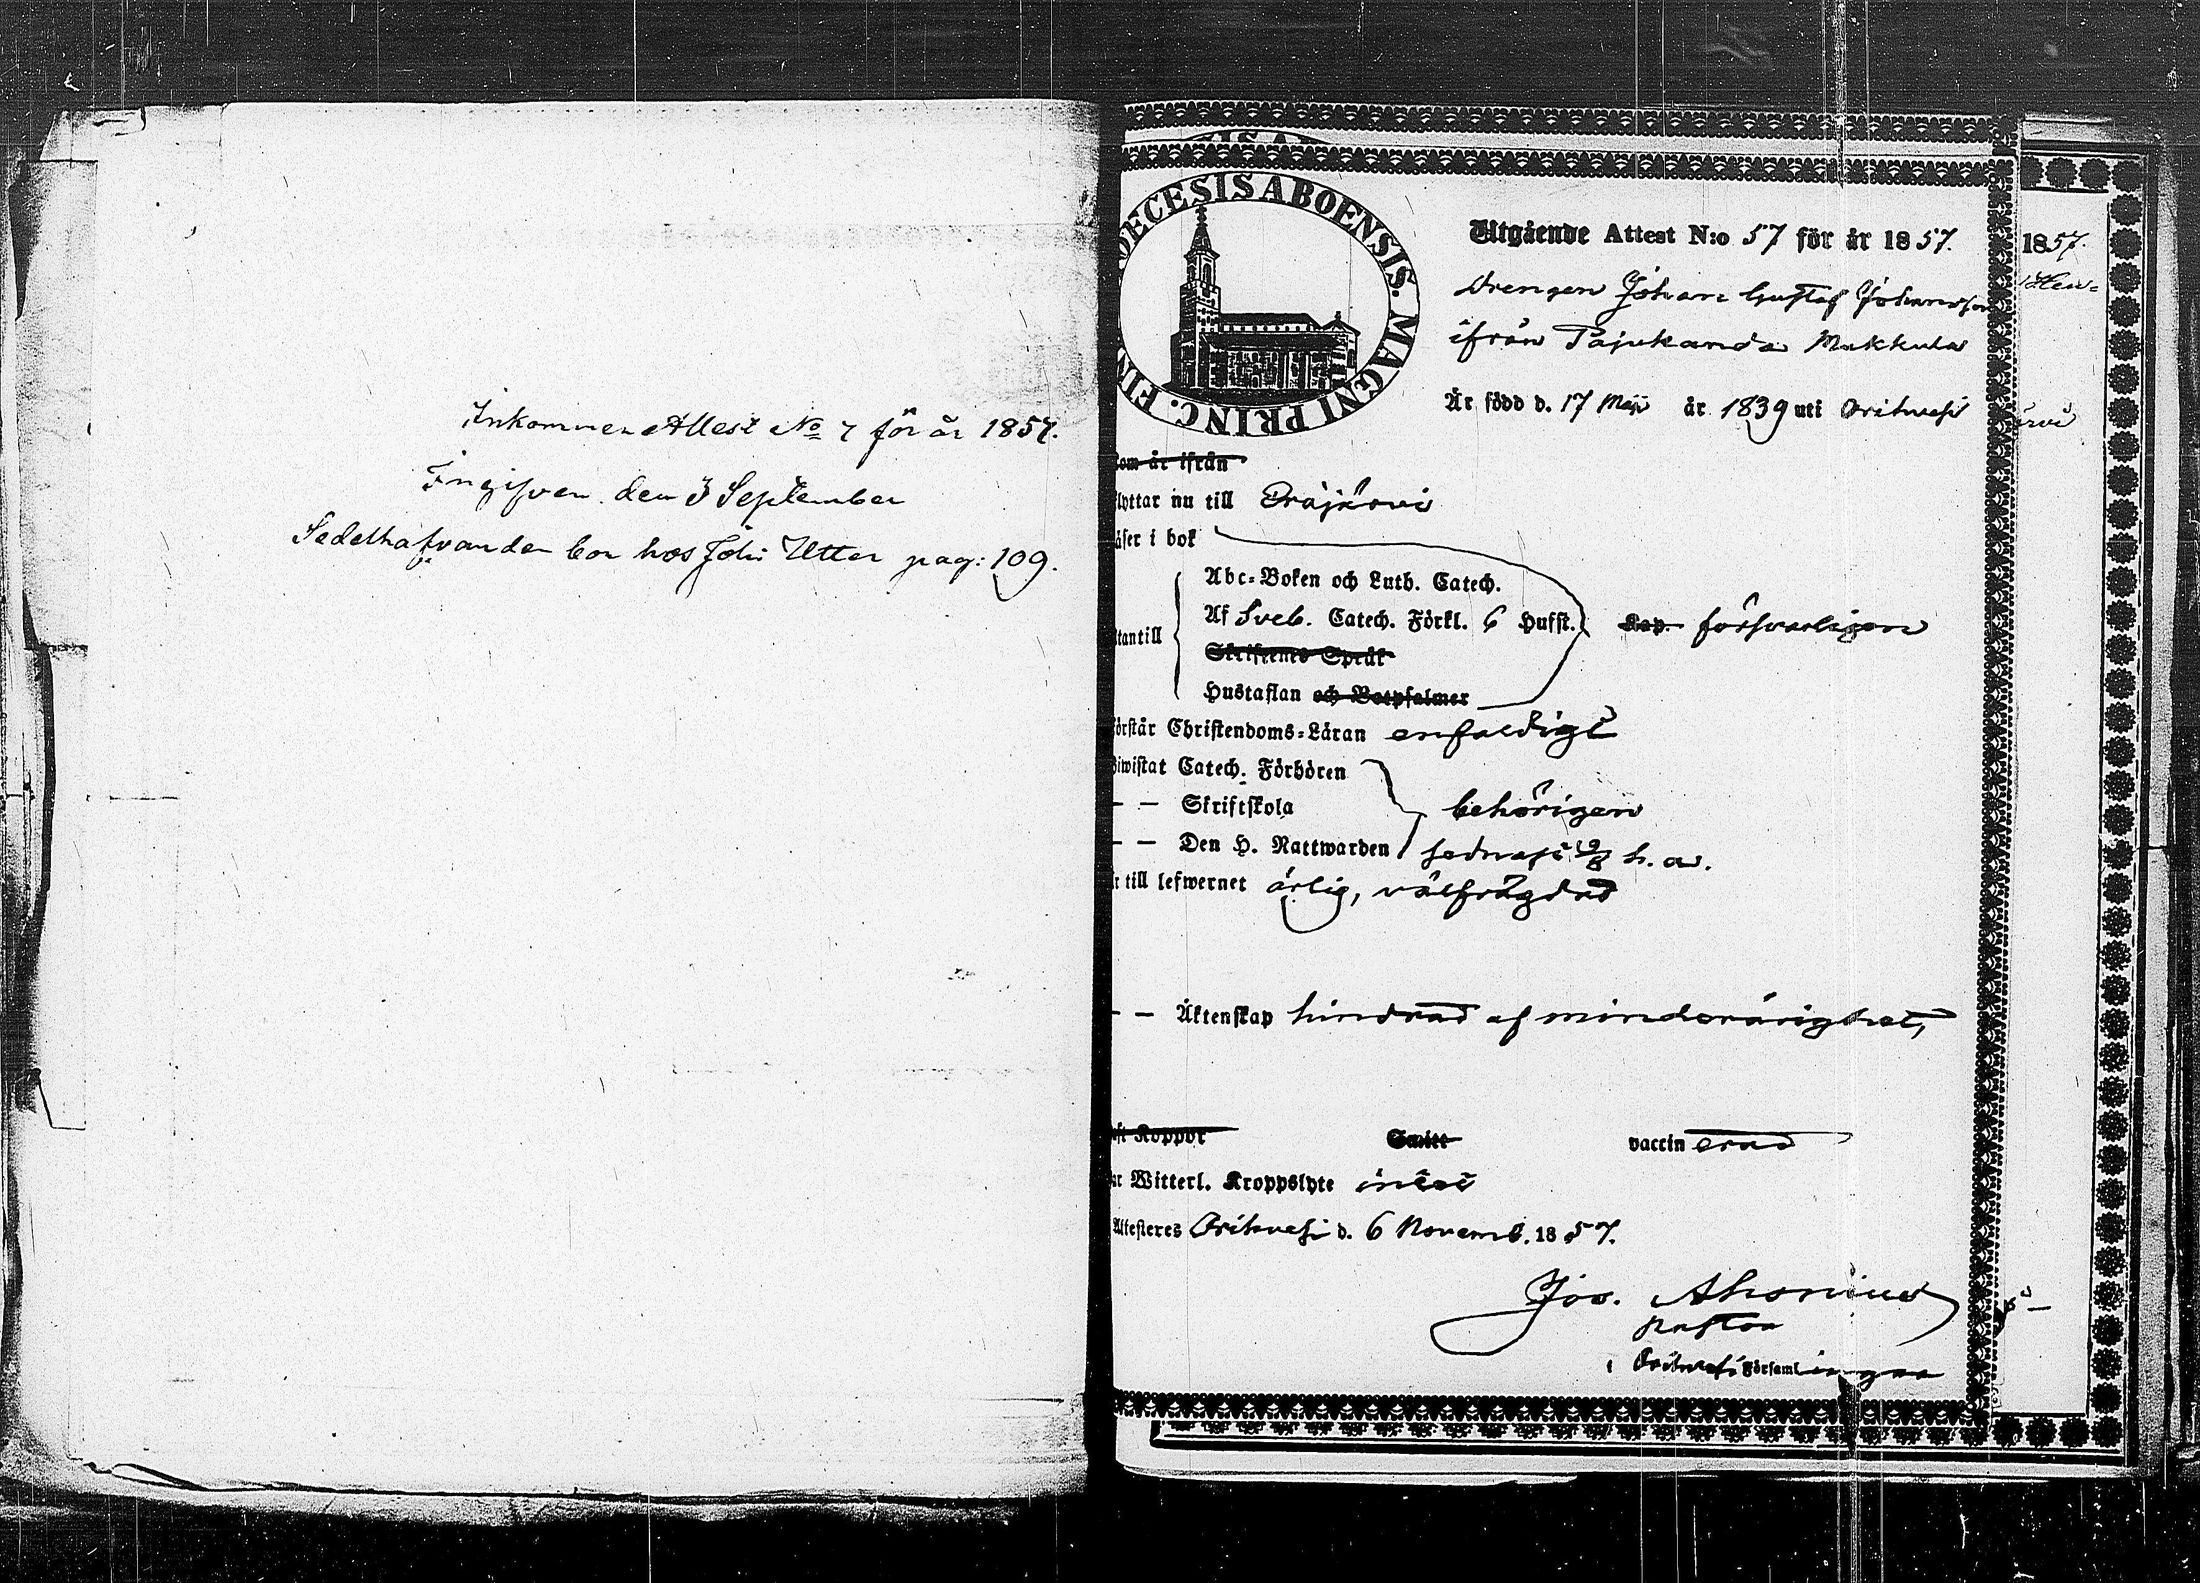 Inkommen Attest No 7 för år 1857.
Ingifven den 3 September
Sedelhafvanden bor hos Joh: Utter pag: 109.
ECESIS ABOENSIS. MAGNI PRINC. FIN
Utgående Attest N:o 57 för år 1857.
Drengen Johan Gustaf Johansson
ifrån Pajukanda Makkula
Är född d. 17 Maji år 1839 uti Orihvesi
som är ifrån
flyttar nu till Eräjärvi
äser i bok
Abc-Boken och Luth. Catech.
utantill Af Sveb. Catech. Förkl. 6 Hufst. Kap. försvarligen
Skriftens Språk
Hustaflan och Botpsalmer
örstår Christendoms-Läran enfaldigt
biwistat Catech. Förhören
— — Skriftskola behörigen
— — Den H. Nattwarden sednast 9/8 h. a.
r till lefwernet ärlig, välfrägdad
— — Äktenskap hindrad af minderårighet,
aft Koppor Smitt vaccinerad
ar Witterl. Kroppslyte intet
Attesteres Orihvesi d. 6 Novemb. 1857.
Jos. Ahonius
Pastor
i Orihvesi Församlingar
1857.